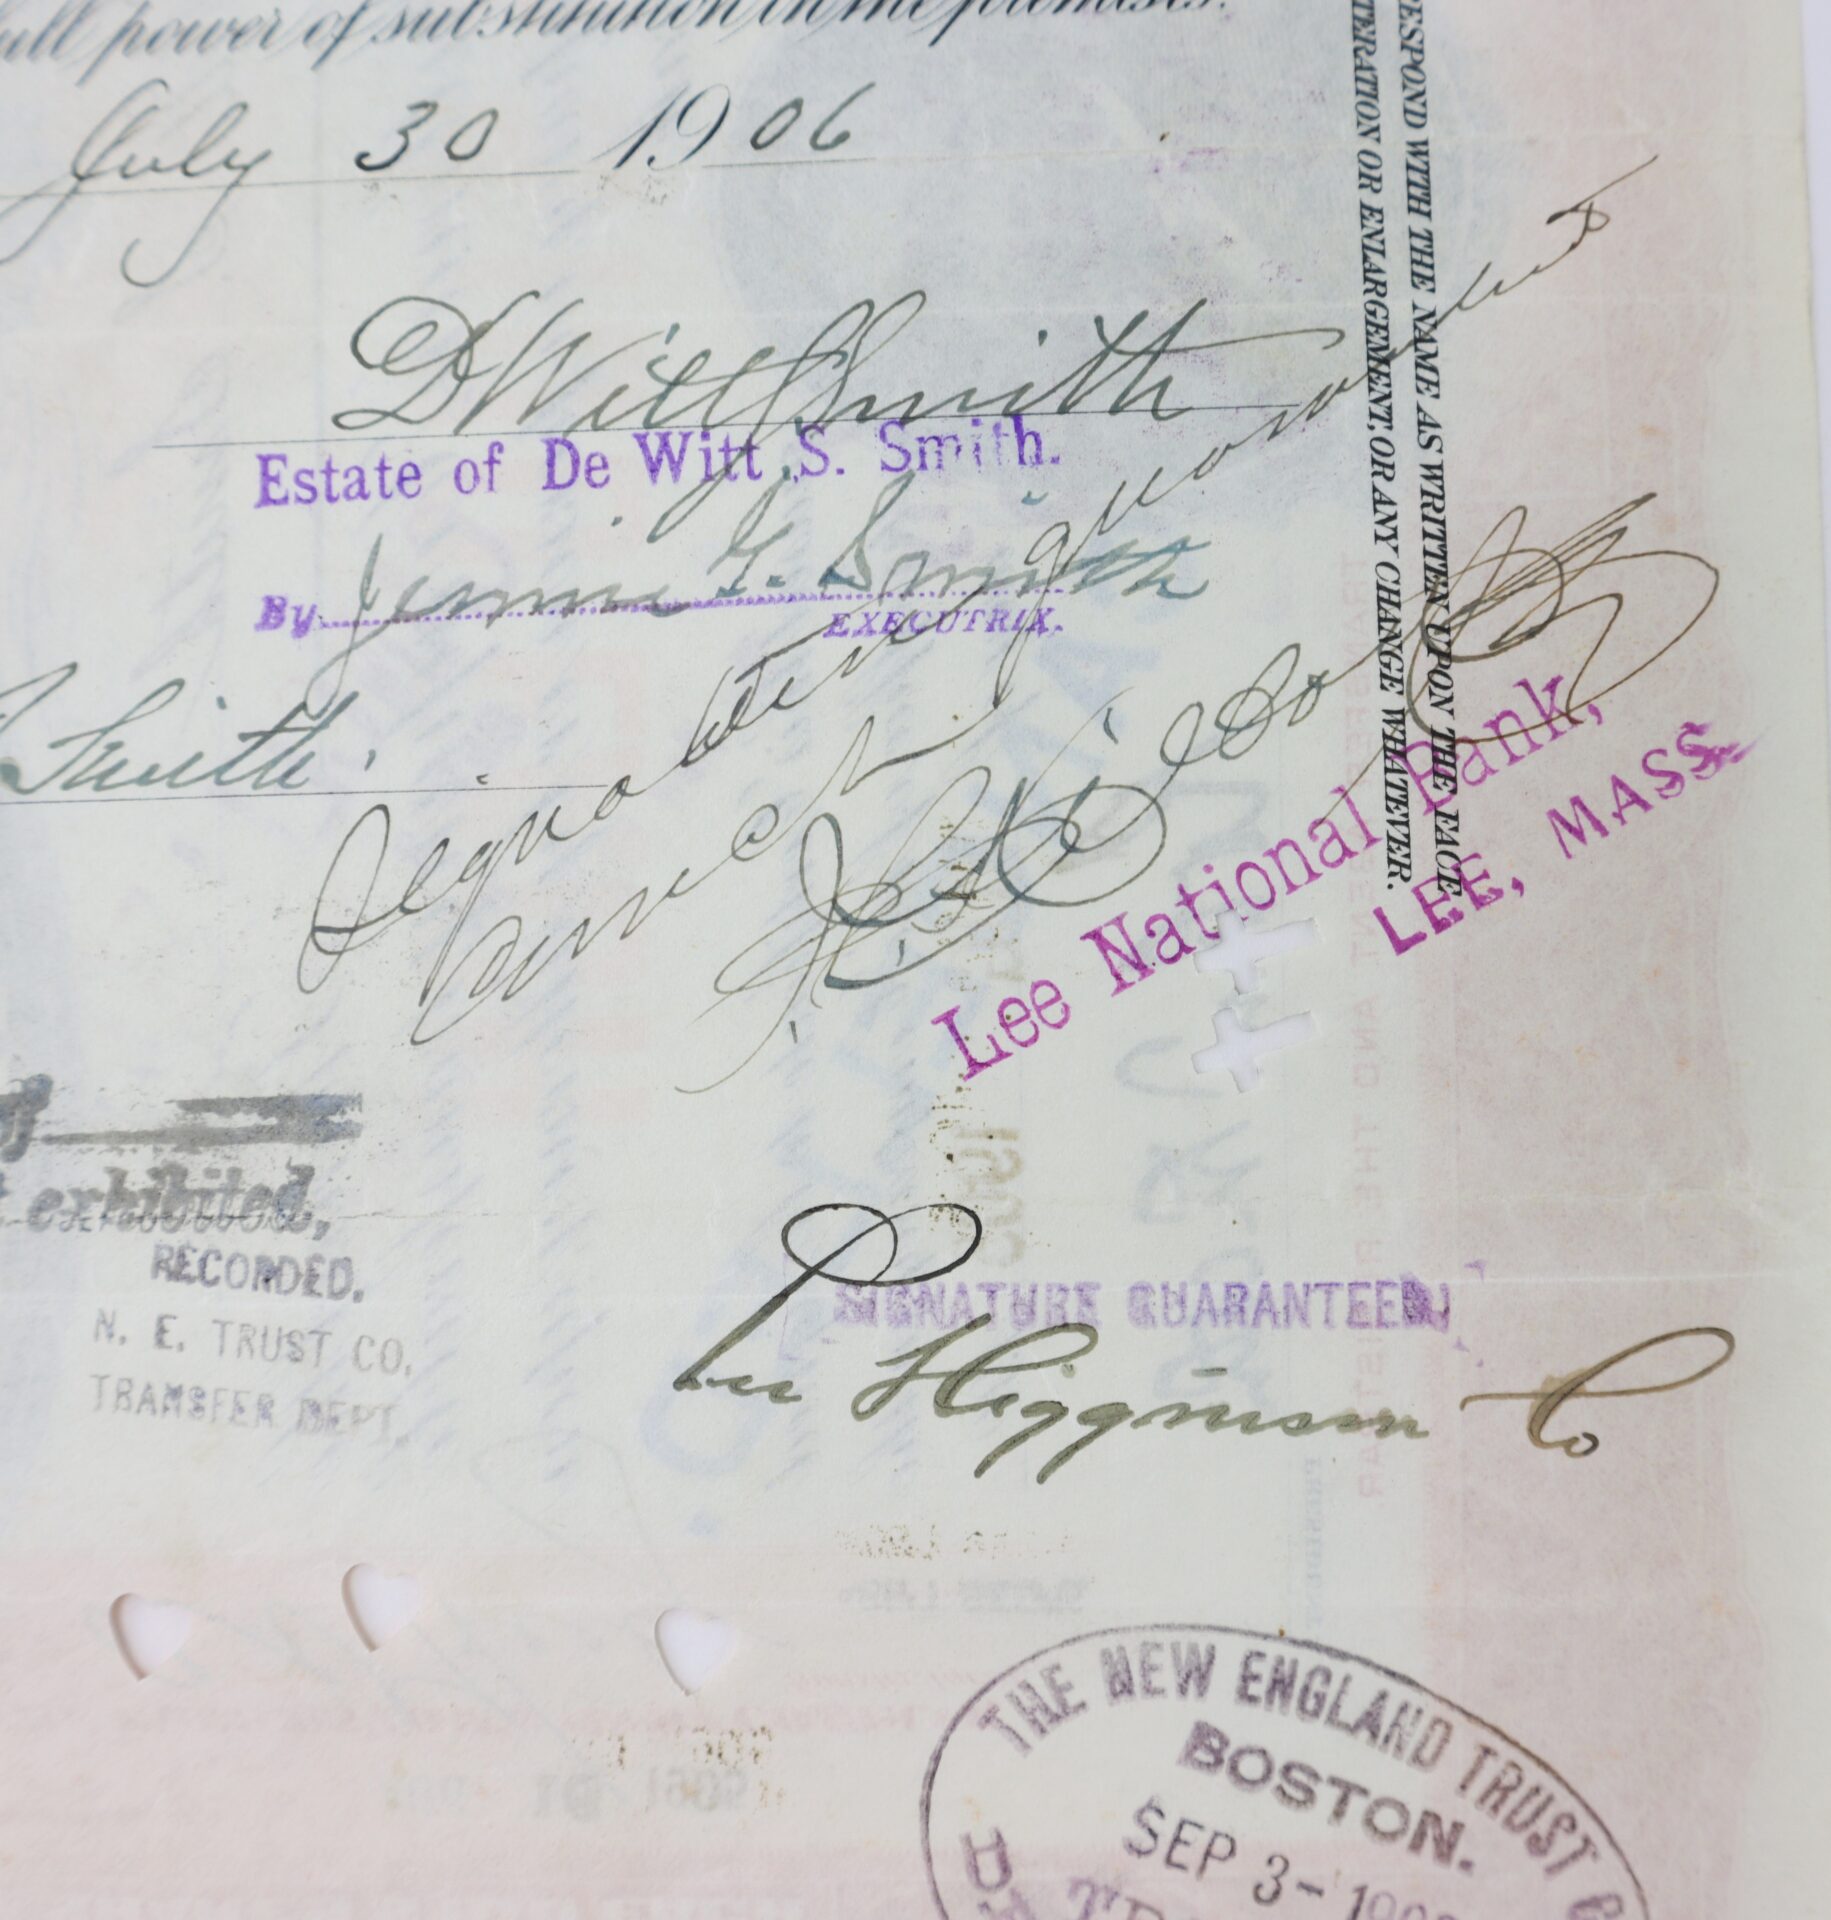 full power of substitution in the premises.
July 30 1906
D Witt S Smith
Estate of De Witt S. Smith.
By Jennie G. Smith
EXECUTRIX.
Smith.
Signature guaranteed
correct
Lee National Bank,
LEE, MASS.
RESPOND WITH THE NAME AS WRITTEN UPON THE FACE
TERATION OR ENLARGEMENT, OR ANY CHANGE WHATEVER.
exhibited,
RECORDED.
N. E. TRUST CO.
TRANSFER DEPT.
SIGNATURE GUARANTEED
Lee Higginson Co
THE NEW ENGLAND TRUST
BOSTON.
SEP 3-